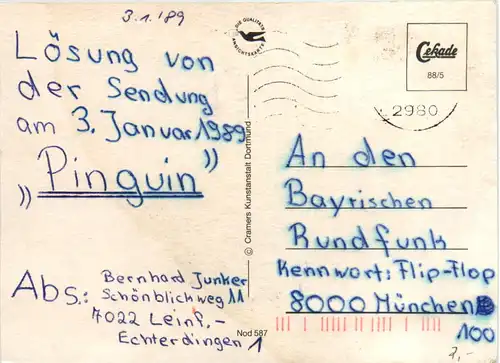 3.1.'89
Lösung von
der Sendung
am 3. Januar 1989
„Pinguin”
Abs.: Bernhard Junker
Schönblickweg 11
7022 Leinf.-
Echterdingen 1
DIE QUALITÄTS
ANSICHTSKARTE
© Cramers Kunstanstalt Dortmund
Nod 587
Cekade
88/5
2980
An den
Bayrischen
Rundfunk
Kennwort: Flip-Flop
8000 München
100
2,-